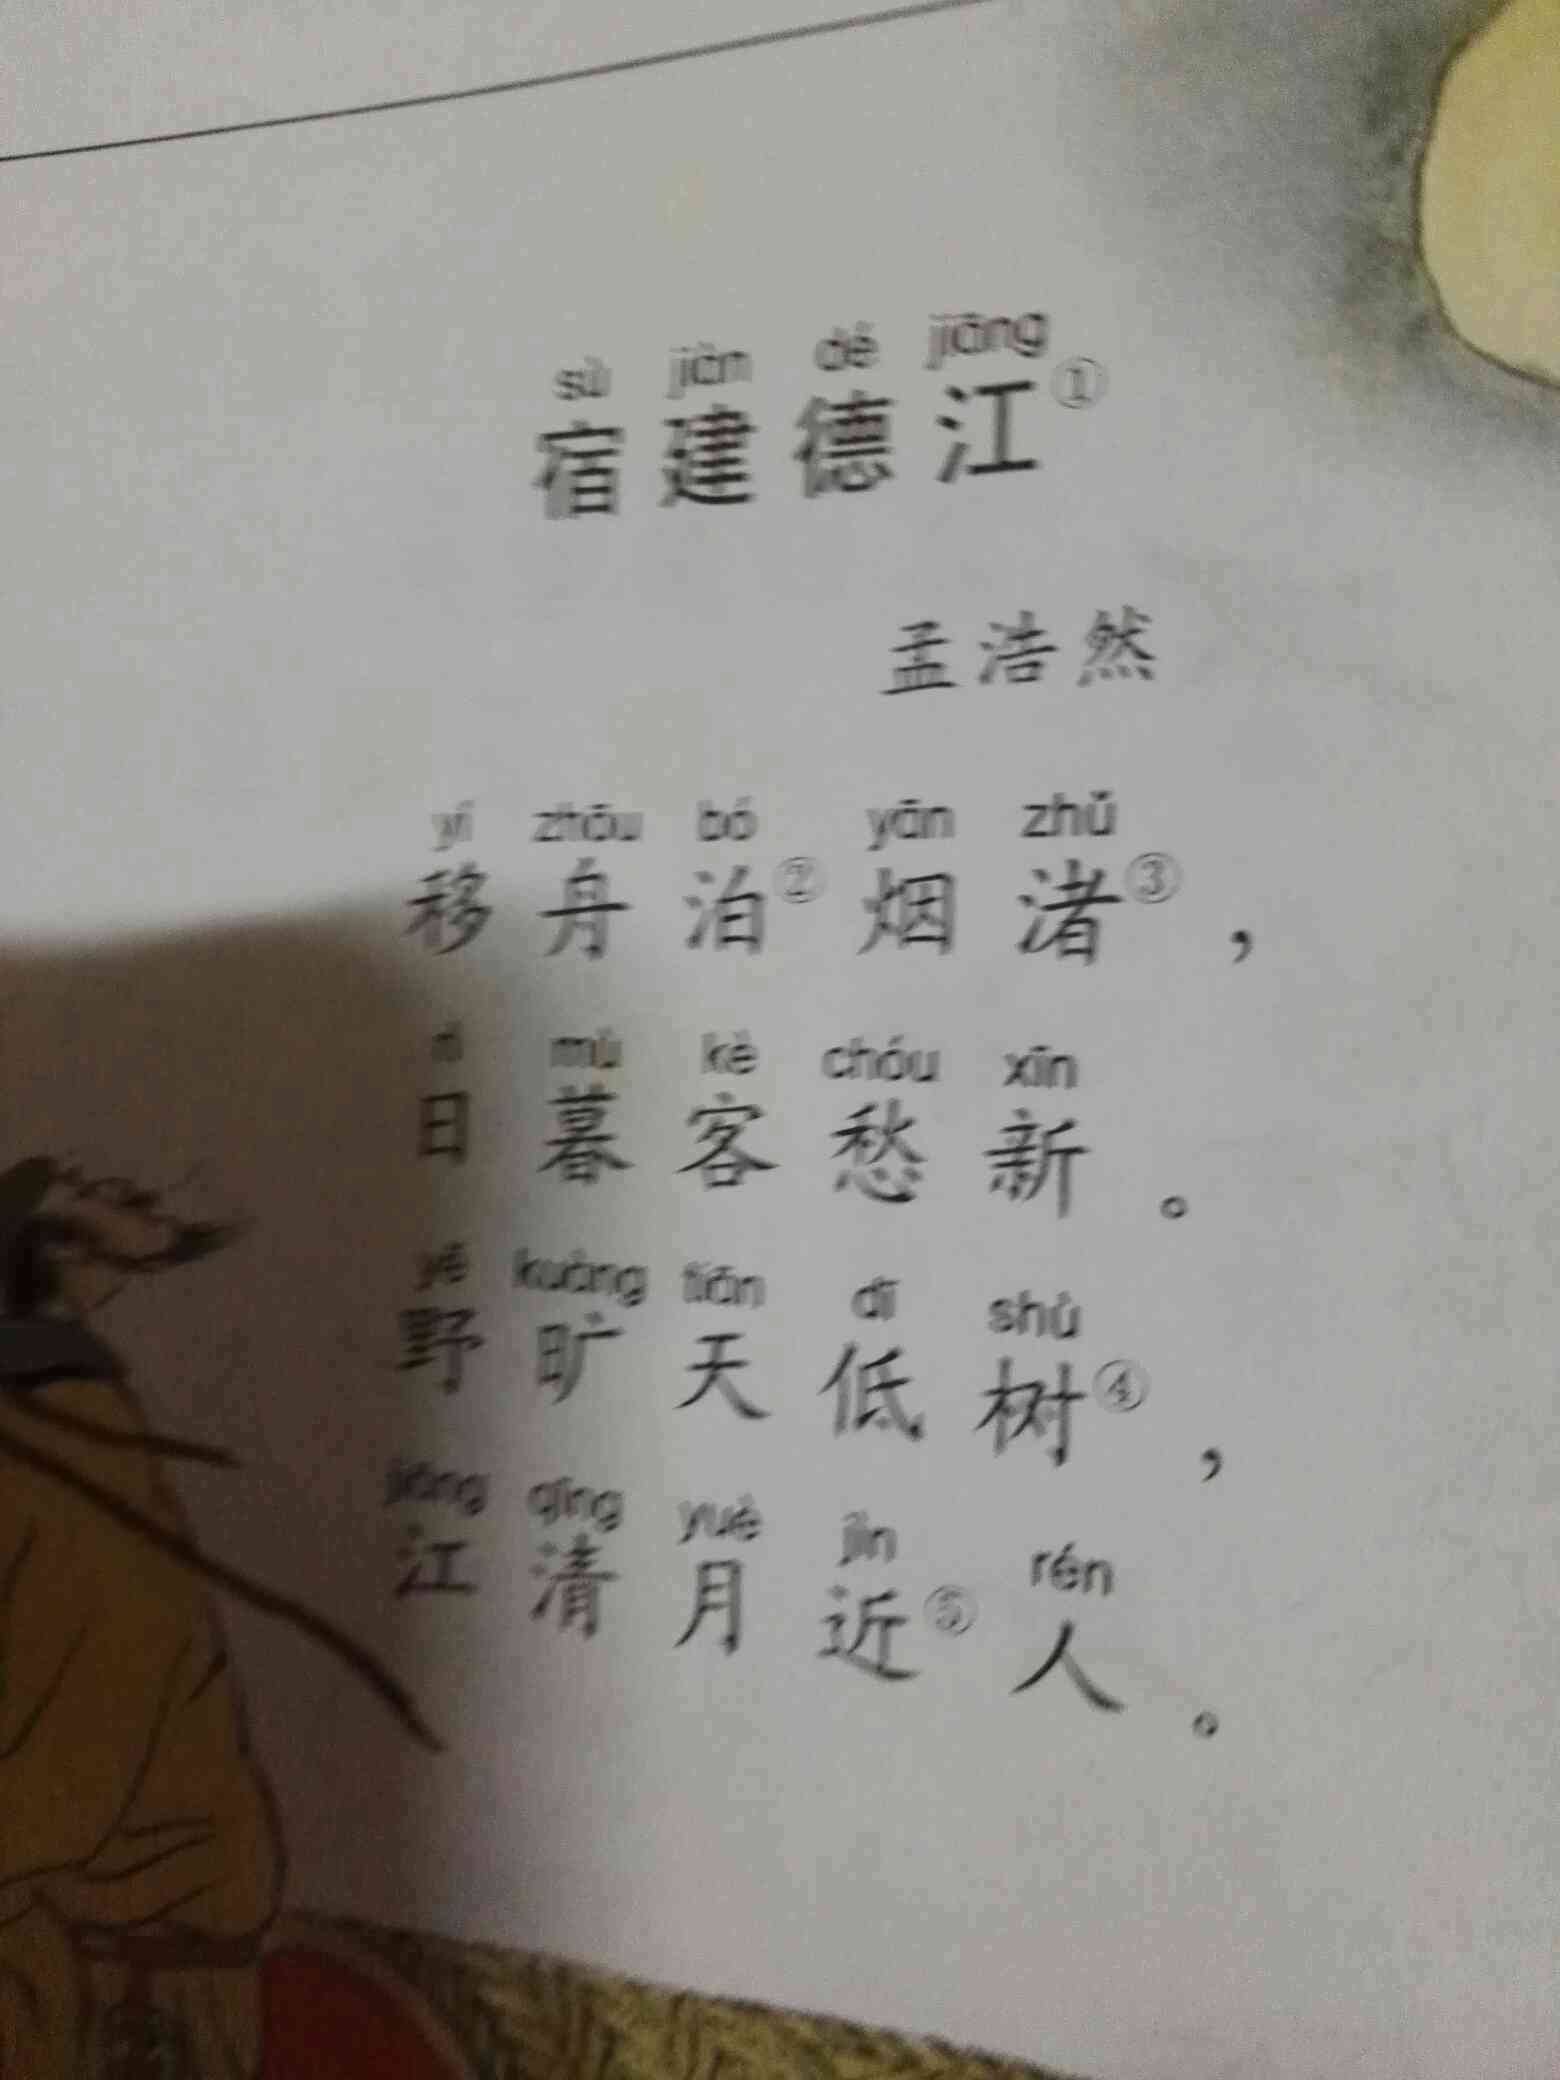 sù jiàn dé jiāng
宿建德江①
孟浩然
yí zhōu bó yān zhǔ
移舟泊②烟渚③，
rì mù kè chóu xīn
日暮客愁新。
yě kuàng tiān dī shù
野旷天低树④，
jiāng qīng yuè jìn rén
江清月近⑤人。